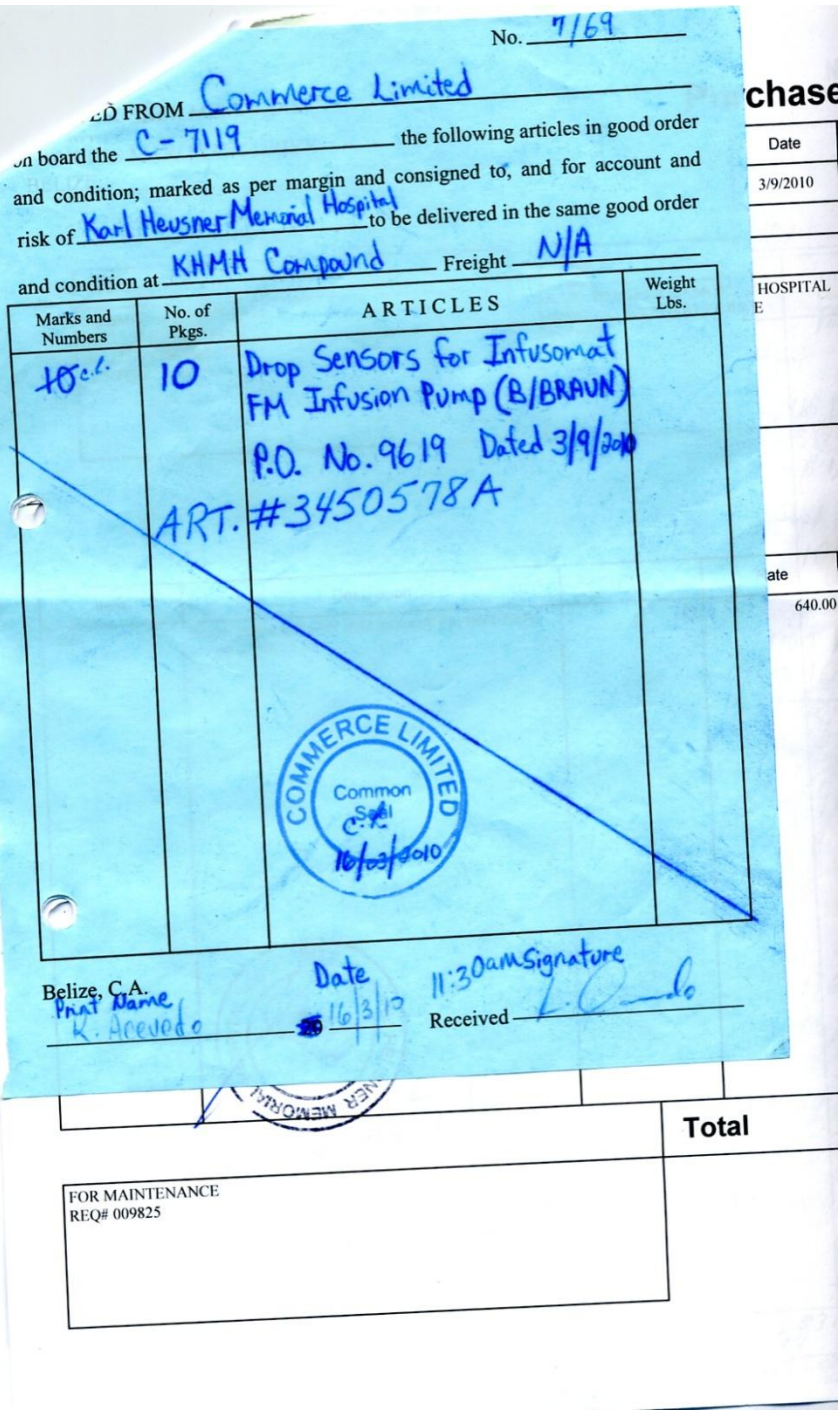 No. 7/69
ED FROM Commerce Limited
on board the C-7119 the following articles in good order
and condition; marked as per margin and consigned to, and for account and
risk of Karl Heusner Memorial Hospital to be delivered in the same good order
and condition at KHMH Compound Freight N/A
Marks and Numbers No. of Pkgs. ARTICLES Weight Lbs.
10 c.l. 10 Drop Sensors for Infusomat
FM Infusion Pump (B/BRAUN)
P.O. No. 9619 Dated 3/9/2010
ART. #3450578A
COMMERCE LIMITED
Common
Seal
16/03/2010
Belize, C.A. Date 11:30am Signature
Print Name
K. Acevedo 20 16/3/10 Received
chase
Date
3/9/2010
HOSPITAL
E
ate
640.00
NER MEMORIAL
Total
FOR MAINTENANCE
REQ# 009825